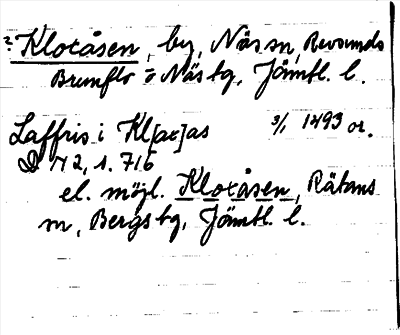 ? Kloxåsen, by, Näs sn, Revsunds
Brunflo o Näs tg, Jämtl. l.
Laffris i Kl[ax]as 3/1 1493 or.
D N 2, s. 716
el. möjl. Kloxåsen, Rätans
sn, Bergs tg, Jämtl. l.